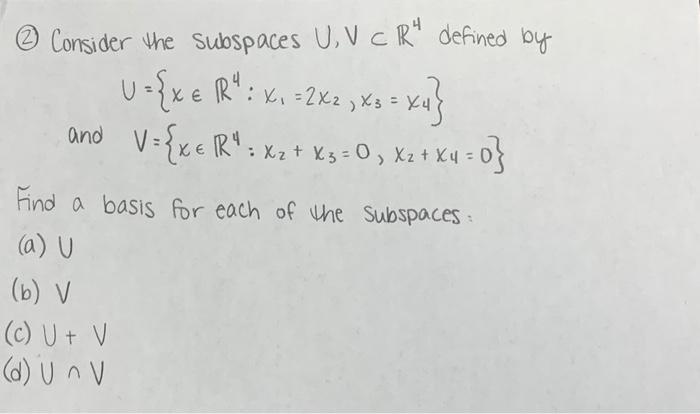 ② Consider the subspaces U, V ⊂ ℝ⁴ defined by
U = {x ∈ ℝ⁴ : x₁ = 2x₂, x₃ = x₄}
and V = {x ∈ ℝ⁴ : x₂ + x₃ = 0, x₂ + x₄ = 0}
Find a basis for each of the subspaces:
(a) U
(b) V
(c) U + V
(d) U ∩ V